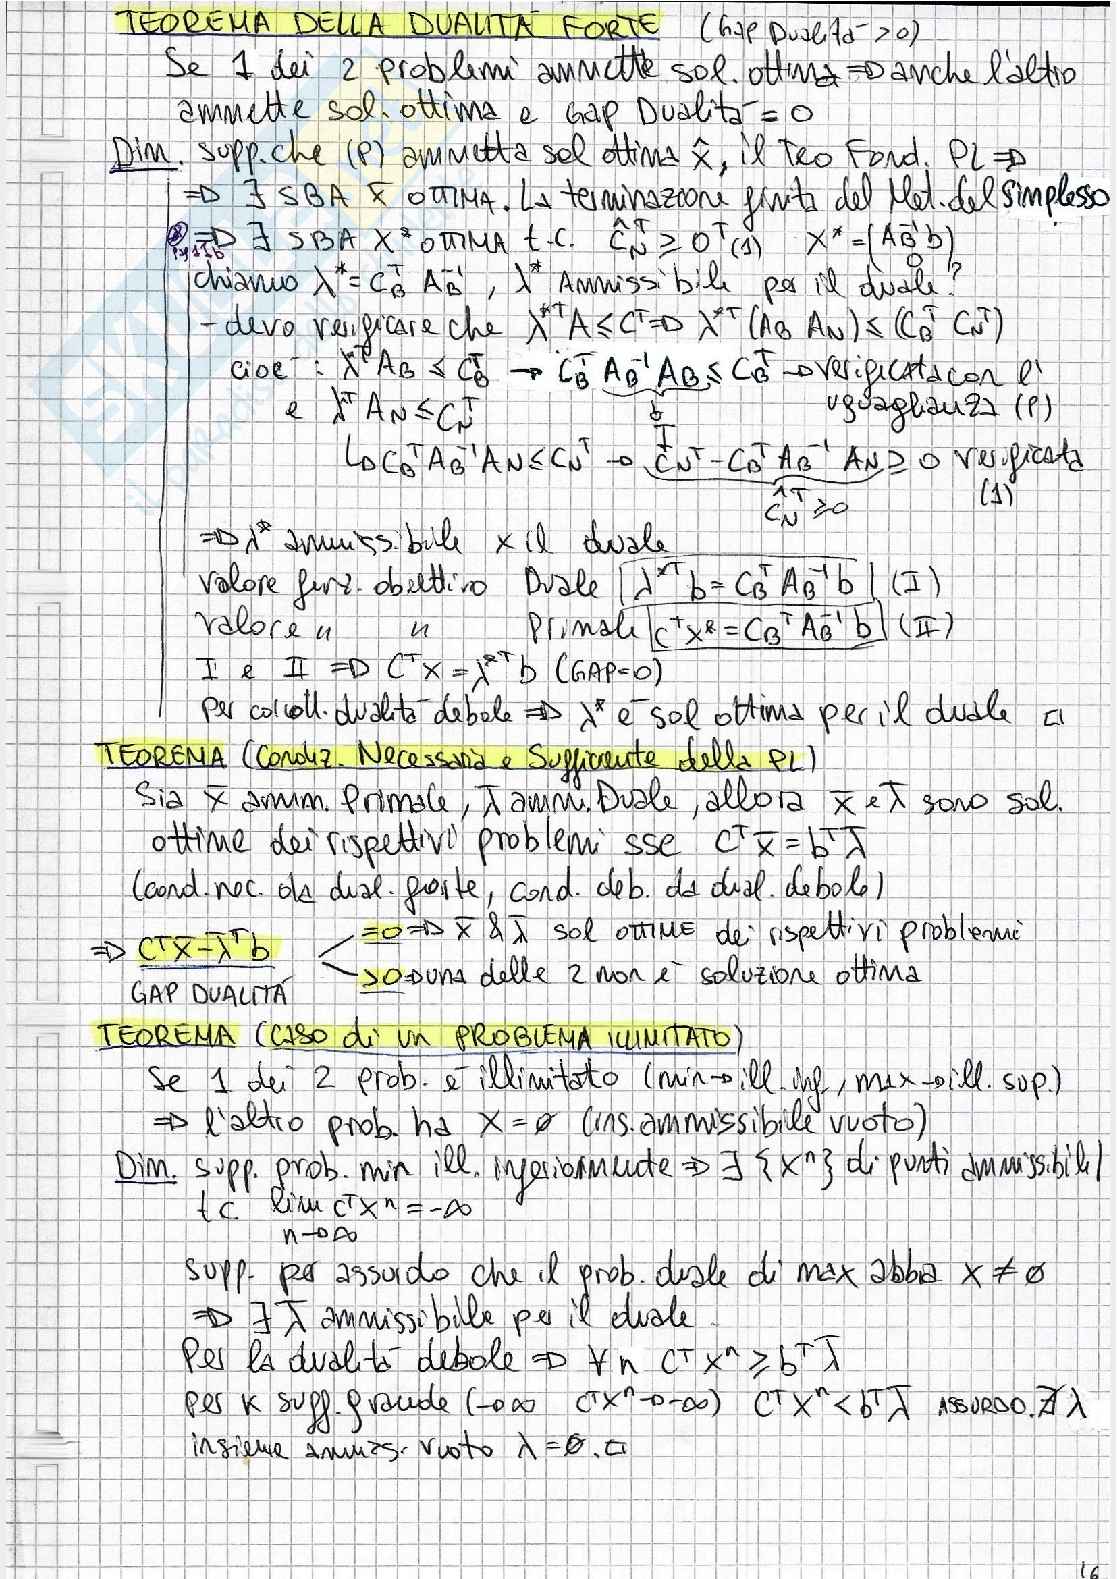 TEOREMA DELLA DUALITÀ FORTE (Gap Dualità >0)
Se 1 dei 2 problemi ammette sol. ottima => anche l'altro
ammette sol. ottima e Gap Dualità = 0
Dim. supp. che (P) ammetta sol ottima x̂, il Teo Fond. PL =>
=> ∃ SBA x̄ OTTIMA. La terminazione finita del Met. del Simplesso
=> ∃ SBA x* OTTIMA t.c. ĉ_N^T ≥ 0^T (1) x* = (A_B^-1 b
0)
chiamo λ* = C_B^T A_B^-1, λ* Ammissibile per il duale?
- devo verificare che λ*^T A ≤ C^T => λ*^T (A_B A_N) ≤ (C_B^T C_N^T)
cioè : λ^T A_B ≤ C_B^T → C_B^T A_B^-1 A_B ≤ C_B^T → verificata con l'
uguaglianza (P)
e λ^T A_N ≤ C_N^T
I
↳ C_B^T A_B^-1 A_N ≤ C_N^T → C_N^T - C_B^T A_B^-1 A_N ≥ 0 verificata
ĉ_N^T ≥ 0 (1)
=> λ* ammissibile x il duale
valore funz. obiettivo Duale λ*^T b = C_B^T A_B^-1 b (I)
Valore " " Primale C^T x* = C_B^T A_B^-1 b (II)
I e II => C^T x = λ*^T b (GAP=0)
per coroll. dualità debole => λ* è sol ottima per il duale □
TEOREMA (Condiz. Necessaria e Sufficiente della PL)
Sia x̄ amm. Primale, λ̄ amm. Duale, allora x̄ e λ̄ sono sol.
ottime dei rispettivi problemi sse C^T x̄ = b^T λ̄
(cond. nec. da dual. forte, cond. deb. da dual. debole)
=> C^T x̄ - λ̄^T b =0 => x̄ & λ̄ sol OTTIME dei rispettivi problemi
>0 => una delle 2 non è soluzione ottima
GAP DUALITÀ
TEOREMA (CASO di un PROBLEMA ILLIMITATO)
Se 1 dei 2 prob. è illimitato (min → ill. inf, max → ill. sup.)
=> l'altro prob. ha X = ∅ (ins. ammissibile vuoto)
Dim. supp. prob. min ill. inferiormente => ∃ {x^n} di punti ammissibili
t c lim C^T x^n = -∞
n→∞
supp. per assurdo che il prob. duale di max abbia X ≠ ∅
=> ∃ λ̄ ammissibile per il duale.
Per la dualità debole => ∀ n C^T x^n ≥ b^T λ̄
per K suff. grande (→∞ C^T x^n → -∞) C^T x^n < b^T λ̄ ASSURDO. ∄ λ
insieme ammiss. vuoto λ = ∅. □
16